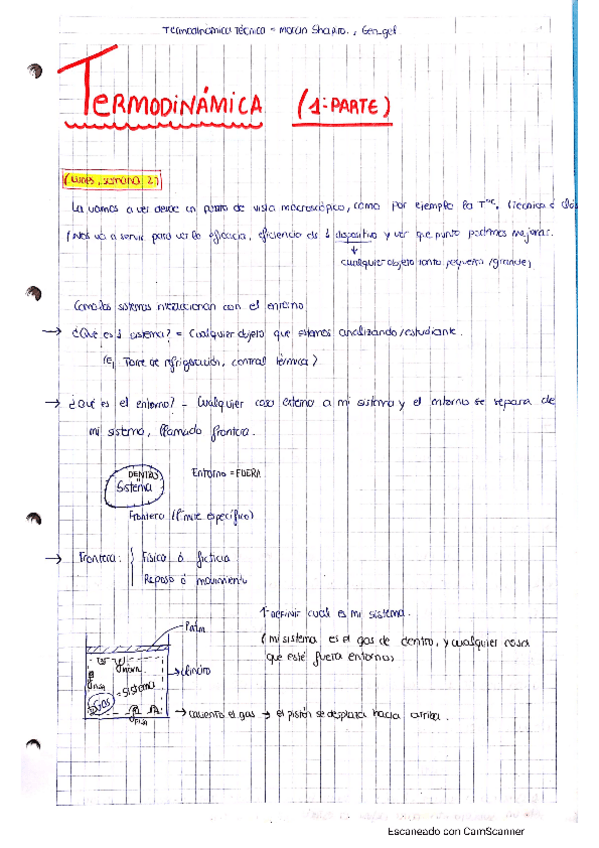 Termodinámica Técnica = Moran Shapiro.,
TERMODINÁMICA (1ª PARTE)
(Lunes, semana 2)
La vamos a ver desde un punto de vista macroscópico, como por ejemplo la Tª,
(Nos va a servir para ver la eficacia, eficiencia de dispositivo y ver que punto podemos mejorar.
cualquier objeto tanto pequeño/grande)
Como los sistemas interaccionan con el entorno
→ ¿Qué es sistema? = Cualquier objeto que estamos analizando/estudiante.
(ej Torre de refrigeración, central térmica)
→ ¿Qué es el entorno? - Cualquier cosa externa a mi sistema y el entorno se separa de
mi sistema, llamado frontera.
DENTRO Entorno = FUERA
Sistema
Frontera (límite específico)
→ Frontera: Físico ó ficticia
Reposo ó movimiento
1- Definir cual es mi sistema.
(mi sistema es el gas de dentro, y cualquier cosa
que esté fuera entorno)
→ cilindro
Gas = Sistema
→ caliento el gas → el pistón se desplaza hacia arriba.
Escaneado con CamScanner